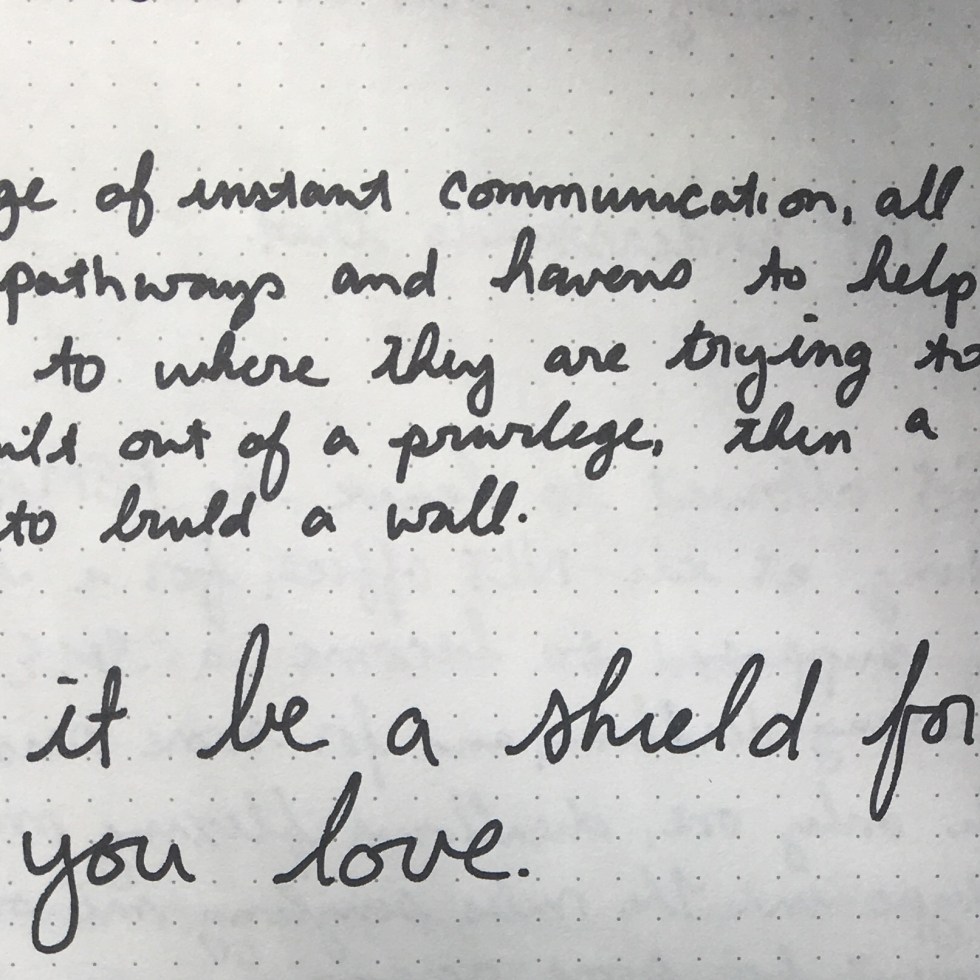 ge of instant communication, all
pathways and havens to help
to where they are trying to
uilt out of a privilege, then a
to build a wall.
it be a shield for
you love.